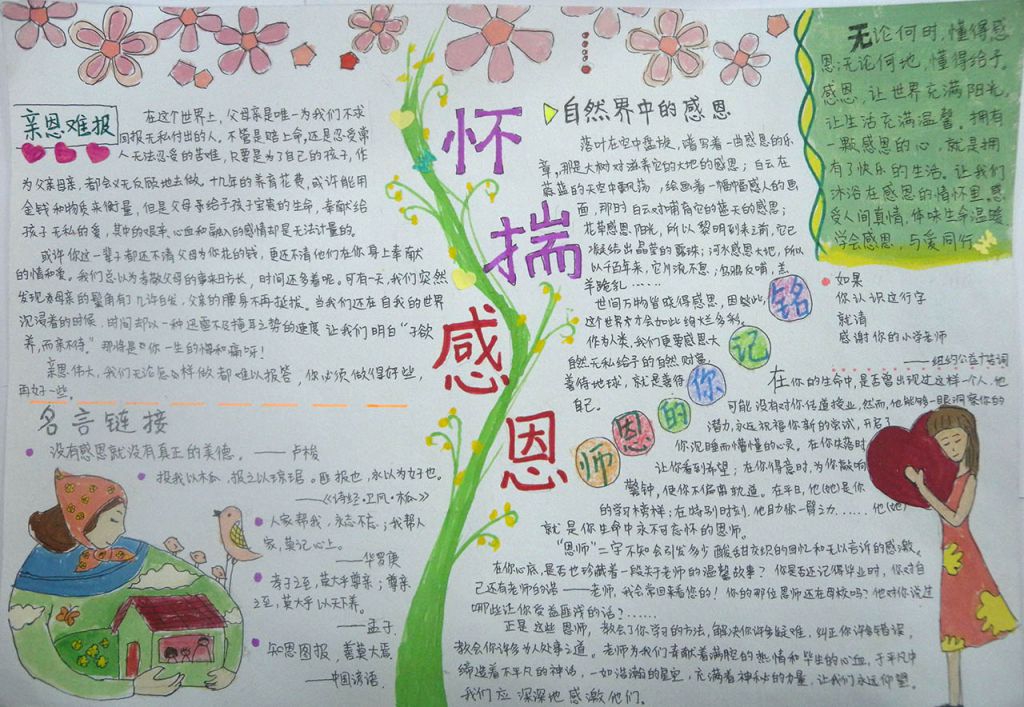 亲恩难报
在这个世界上，父母亲是唯一为我们不求
回报无私付出的人，不管是赔上命，还是忍受常
人无法忍受的苦难，只要是为了自己的孩子，作
为父亲母亲，都会义无反顾地去做。十几年的养育花费，或许能用
金钱和物质来衡量，但是父母等给予孩子宝贵的生命，奉献给
孩子无私的爱，其中的艰辛、心血和融入的感情却是无法计量的。
或许你这一辈子都还不清父母为你花的钱，更还不清他们在你身上奉献
的情和爱。我们总以为孝敬父母的事来日方长，时间还多着呢。可有一天，我们突然
发现父母亲的鬓角有了几许白发，父亲的腰身不再挺拔。当我们还在自我的世界
沉浸着的时候，时间却以一种迅雷不及掩耳之势的速度让我们明白“子欲
养，而亲不待。”那将是你一生的悔和痛呀！
亲恩伟大，我们无论怎么样做都难以报答，你必须做得好些，
再好一些。
名言链接
没有感恩就没有真正的美德。——卢梭
投我以木瓜，报之以琼琚。匪报也，永以为好也。
——《诗经·卫风·木瓜》
人家帮我，永志不忘；我帮人
家，莫记心上。
——华罗庚
孝子之至，莫大乎尊亲；尊亲
之至，莫大乎以天下养。
——孟子
知恩图报，善莫大焉
——中国谚语
怀揣感恩
自然界中的感恩
落叶在空中盘旋，谱写着一曲感恩的乐
章，那是大树对滋养它的大地的感恩；白云在
蔚蓝的天空中飘荡，绘画着一幅幅感人的画
面，那时白云对哺育它的蓝天的感恩；
花草感恩阳光，所以黎明到来之前，它已
凝结出晶莹的露珠；河水感恩大地，所以
以千百年来，它川流不息；乌鸦反哺，羔
羊跪乳……
世间万物皆晓得感恩，因此，
这个世界才会如此绚烂多彩。
作为人类，我们更要感恩大
自然无私给予的自然财富，
善待地球，就是善待
自己。
无论何时，懂得感
恩；无论何地，懂得给予。
感恩，让世界充满阳光，
让生活充满温馨。拥有
一颗感恩的心，就是拥
有了快乐的生活。让我们
沐浴在感恩的情怀里，感
受人间真情，体味生命温暖
学会感恩，与爱同行
如果
你认识这行字
就请
感谢你的小学老师
——纽约公益广告词
铭记你的恩师
在你的生命中，是否曾出现过这样一个人，他
可能没有对你传道授业，然而，他能够一眼洞察你的
潜力，永远祝福你新的尝试，开启了
你沉睡而懵懂的心灵。在你失落时
让你看到希望；在你得意时，为你敲响
警钟，使你不偏离轨道。在平日，他(她)是你
的学习榜样；在特别时刻，他助你一臂之力……他(她)
就是你生命中永不可忘怀的恩师。
“恩师”二字不知会引发多少酸甜交织的回忆和无以言诉的感激。
在你心底，是否也珍藏着一段关于老师的温馨故事？你是否还记得毕业时，你对自
己还有老师的诺——老师，我会常回来看您的！你的那位恩师还在母校吗？他对你说过
哪些让你受益匪浅的话？……
正是这些恩师，教会了你学习的方法，解决你许多疑难，纠正你许多错误，
教会你许多为人处事之道。老师为我们奉献着满腔的热情和毕生的心血，于平凡中
缔造着不平凡的神话，一如浩瀚的星空，充满着神秘的力量，让我们永远仰望。
我们应深深地感激他们。